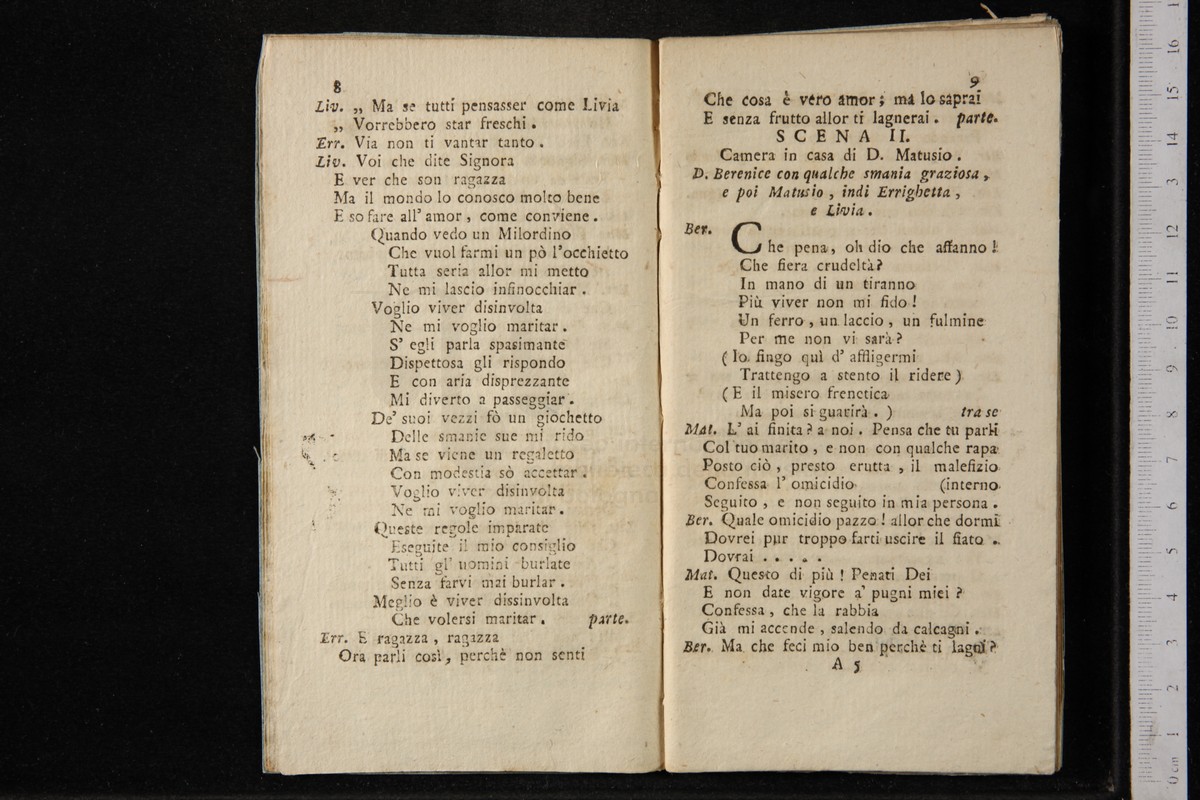 8
Liv. „ Ma se tutti pensasser come Livia
„ Vorrebbero star freschi .
Err. Via non ti vantar tanto .
Liv. Voi che dite Signora
E ver che son ragazza
Ma il mondo lo conosco molto bene
E so fare all' amor , come conviene .
Quando vedo un Milordino
Che vuol farmi un pò l'occhietto
Tutta seria allor mi metto
Ne mi lascio infinocchiar .
Voglio viver disinvolta
Ne mi voglio maritar .
S' egli parla spasimante
Dispettosa gli rispondo
E con aria disprezzante
Mi diverto a passeggiar .
De' suoi vezzi fò un giochetto
Delle smanie sue mi rido
Ma se viene un regaletto
Con modestia sò accettar .
Voglio viver disinvolta
Ne mi voglio maritar .
Queste regole imparate
Eseguite il mio consiglio
Tutti gl' uomini burlate
Senza farvi mai burlar .
Meglio è viver dissinvolta
Che volersi maritar . parte.
Err. E ragazza , ragazza
Ora parli così, perchè non senti
9
Che cosa è vero amor ; ma lo saprai
E senza frutto allor ti lagnerai . parte.
SCENA II.
Camera in casa di D. Matusio .
D. Berenice con qualche smania graziosa ,
e poi Matusio , indi Errighetta ,
e Livia .
Ber. Che pena, oh dio che affanno !
Che fiera crudeltà?
In mano di un tiranno
Più viver non mi fido !
Un ferro , un laccio , un fulmine
Per me non vi sarà ?
( Io fingo quì d' affligermi
Trattengo a stento il ridere )
( E il misero frenetica
Ma poi si guarirà . ) tra se
Mat. L' ai finita ? a noi . Pensa che tu parli
Col tuo marito , e non con qualche rapa
Posto ciò , presto erutta , il malefizio
Confessa l' omicidio (interno
Seguito , e non seguito in mia persona .
Ber. Quale omicidio pazzo ! allor che dormi
Dovrei pur troppo farti uscire il fiato .
Dovrai . . . . .
Mat. Questo di più ! Penati Dei
E non date vigore a' pugni miei ?
Confessa , che la rabbia
Già mi accende , salendo da calcagni .
Ber. Ma che feci mio ben perchè ti lagni ?
A 5
16
15
14
13
12
11
10
9
8
7
6
5
4
3
2
1
0 cm